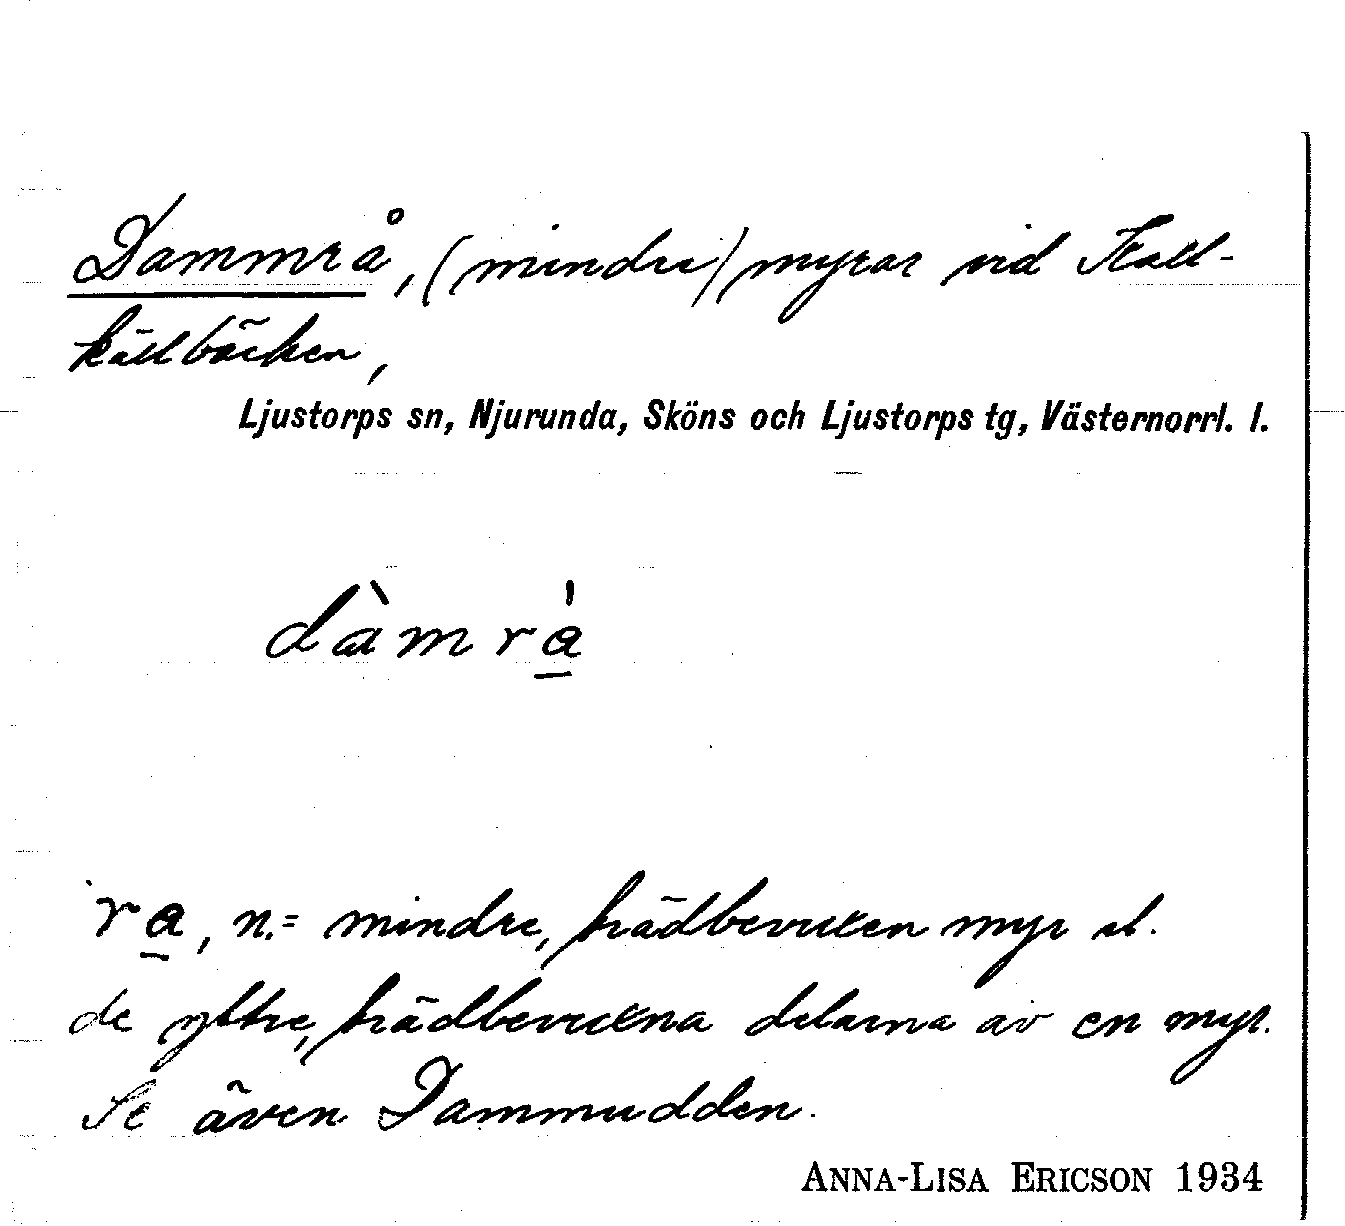 Dammrå, (mindre) myrar vid Kall-
källbäcken,
Ljustorps sn, Njurunda, Sköns och Ljustorps tg, Västernorrl. l.
dàmrà̱
ra̱, n. = mindre, trädbevuxen myr el.
de yttre, trädbevuxna delarna av en myr.
Se även Dammudden.
ANNA-LISA ERICSON 1934